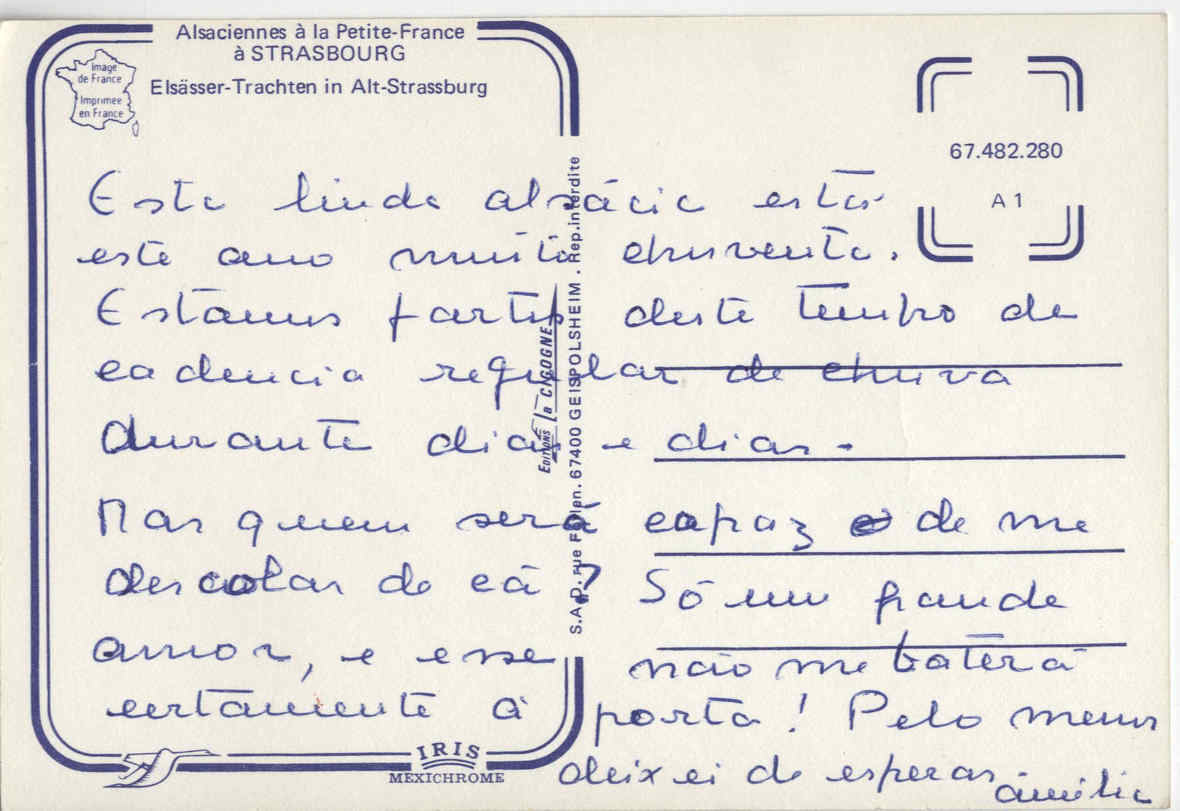 Alsaciennes à la Petite-France
à STRASBOURG
Elsässer-Trachten in Alt-Strassburg
Image
de France
Imprimée
en France
67.482.280
A 1
Esta linda alsácia está
este ano muito chuventa.
Estamos fartos deste tempo de
cadencia regular de chuva
durante dias e dias.
Mas quem será capaz de me
descolar de cá? Só um grande
amor, e esse não me baterá
certamente à porta! Pelo menos
deixei de esperar
Editions la CIGOGNE
S.A.D. rue F. 67400 GEISPOLSHEIM . Rep.interdite
IRIS
MEXICHROME